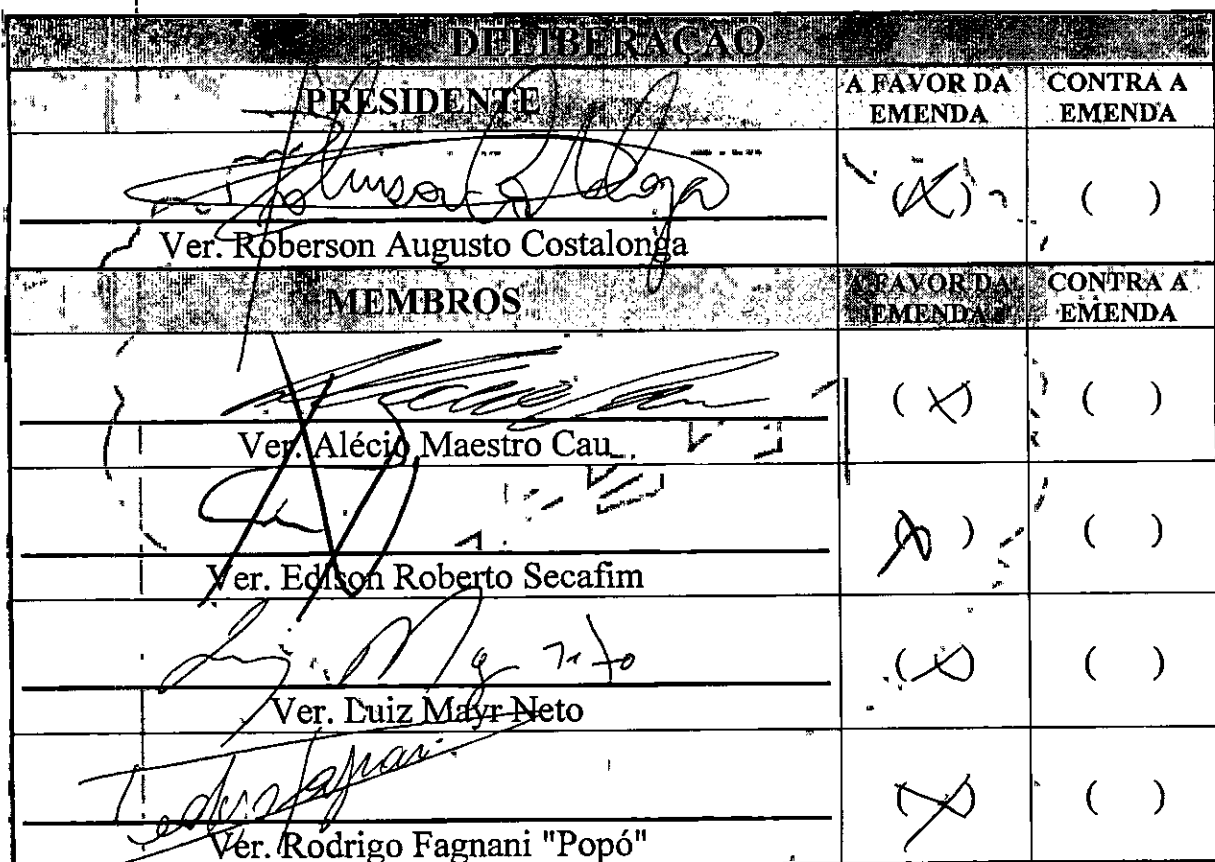 DELIBERAÇÃO
PRESIDENTE A FAVOR DA EMENDA CONTRA A EMENDA
(X) ( )
Ver. Roberson Augusto Costalonga
MEMBROS A FAVOR DA EMENDA CONTRA A EMENDA
(X) ( )
Ver. Alécio Maestro Cau
(X) ( )
Ver. Edison Roberto Secafim
(X) ( )
Ver. Luiz Mayr Neto
(X) ( )
Ver. Rodrigo Fagnani "Popó"